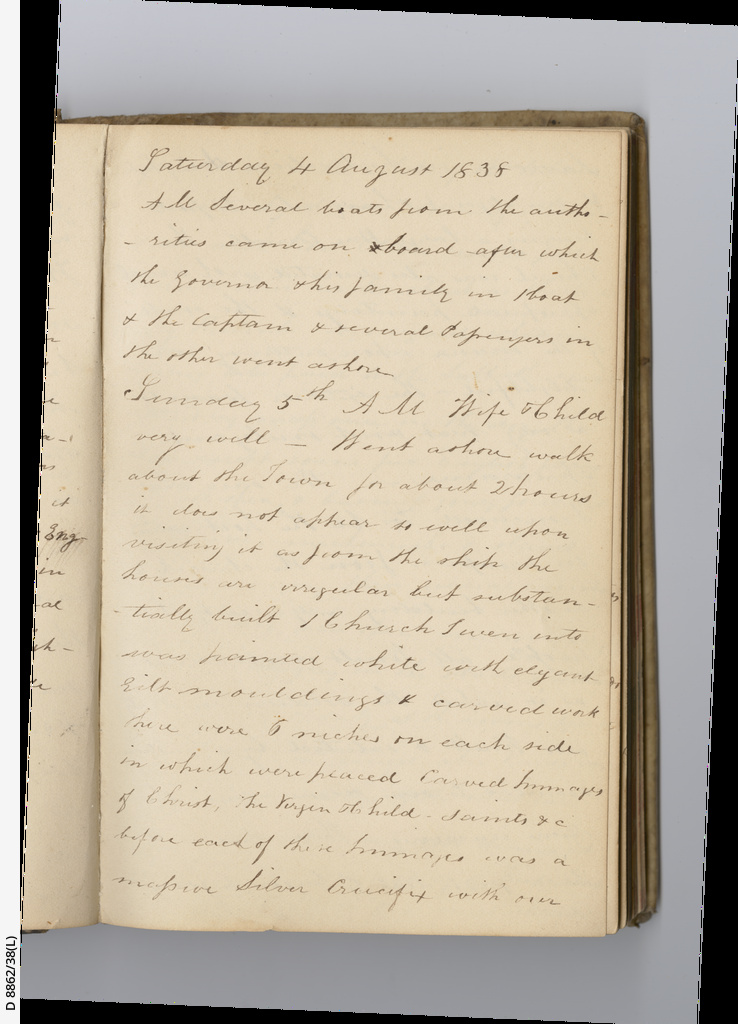 Saturday 4 August 1838
AM Several boats from the autho-
-rities came on board after which
the Governor & his family in 1 boat
& the Captain & several Passengers in
the other went ashore
Sunday 5th AM Wife & Child
very well — Went ashore walk
about the Town for about 2 hours
it does not appear so well upon
visiting it as from the ship the
houses are irregular but substan-
-tially built 1 Church I wen into
was painted white with elegant
Gilt mouldings & carved work
there were 6 niches on each side
in which were placed Carved Immages
of Christ, the Virgin & Child - Saints &c
before each of these Immages was a
massive Silver Crucifix with our
it
Eng
in
al
D 8862/38(L)